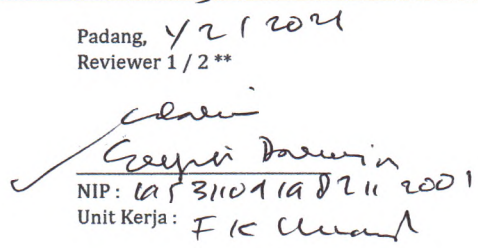 Padang, 4/2/2021
Reviewer 1 / 2 **
Darwin
NIP : 195311091982112001
Unit Kerja : FK Unand